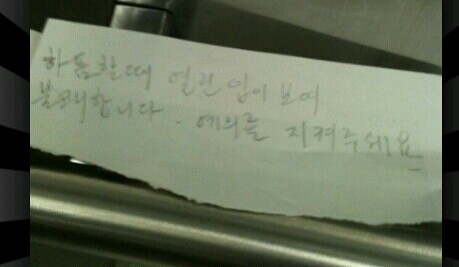 하품할때 열린 입이 보여
불쾌합니다. 예의를 지켜주세요